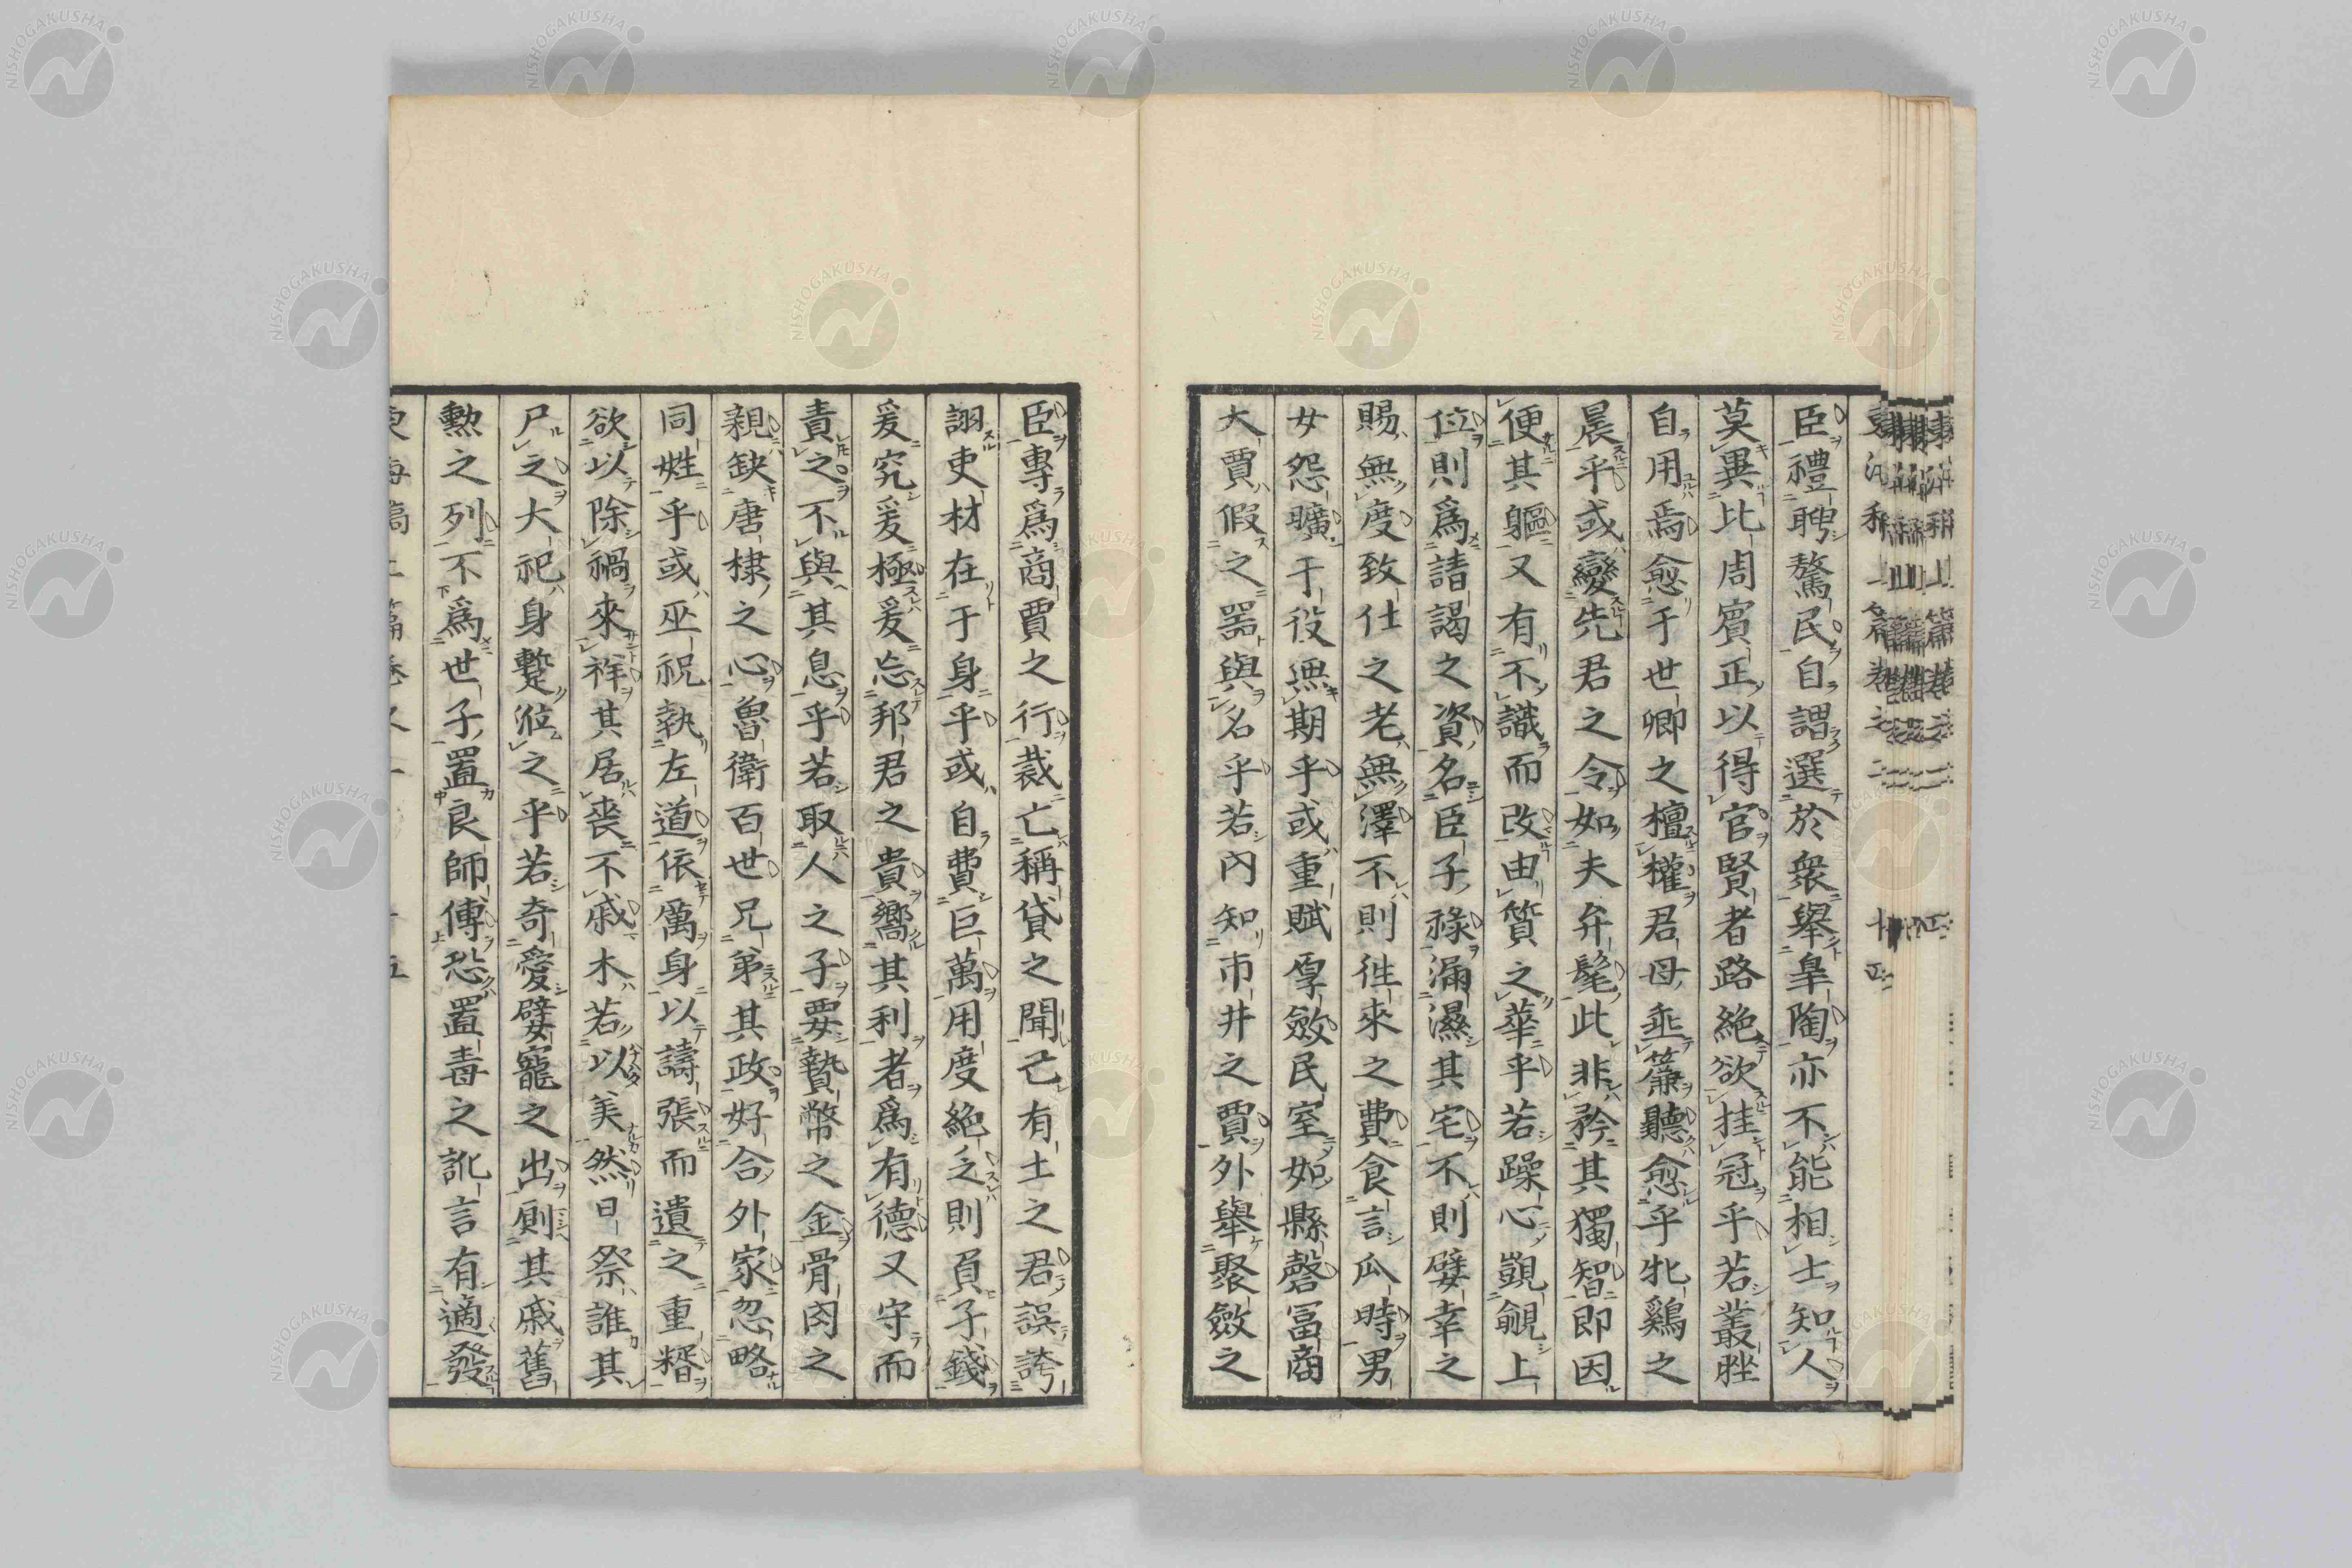 臣禮聘驁民自謂選於衆舉皐陶亦不能相士知人
莫異比周賓正以得官賢者路絶欲挂冠乎若叢脞
自用焉愈于世卿之檀權君母垂簾聽愈乎牝鷄之
晨乎或變先君之令如夫弁髦此非矜其獨智即因
便其軀又有不識而改由質之華乎若躁心覬覦上
位則爲請謁之資名臣子祿滿濕其宅不則嬖幸之
賜無度致仕之老無澤不則徃來之費食言瓜時男
女怨曠于役無期乎或重賦厚斂民室如縣磬冨商
大賈假之器與名乎若内知市井之賈外舉聚斂之
臣專爲商賈之行裁亡稱貸之聞已有土之君誤誇
詡吏材在于身乎或自費巨萬用度絶乏則負子錢
爰究爰極爰忘邦君之貴嚮其利者爲有德又守而
責之不與其息乎若取人之子要贄幣之金骨肉之
親缺唐棣之心魯衛百世兄弟其政好合外家忽略
同姓乎或巫祝執左道依厲身以譸張而遺之重糈
欲以除禍來祥其居喪不戚木若以美然曰祭誰其
尸之大祀身蹔涖之乎若奇愛嬖寵之出則其戚舊
勲之列不爲世子置良師傅恐置毒之訛言有適發